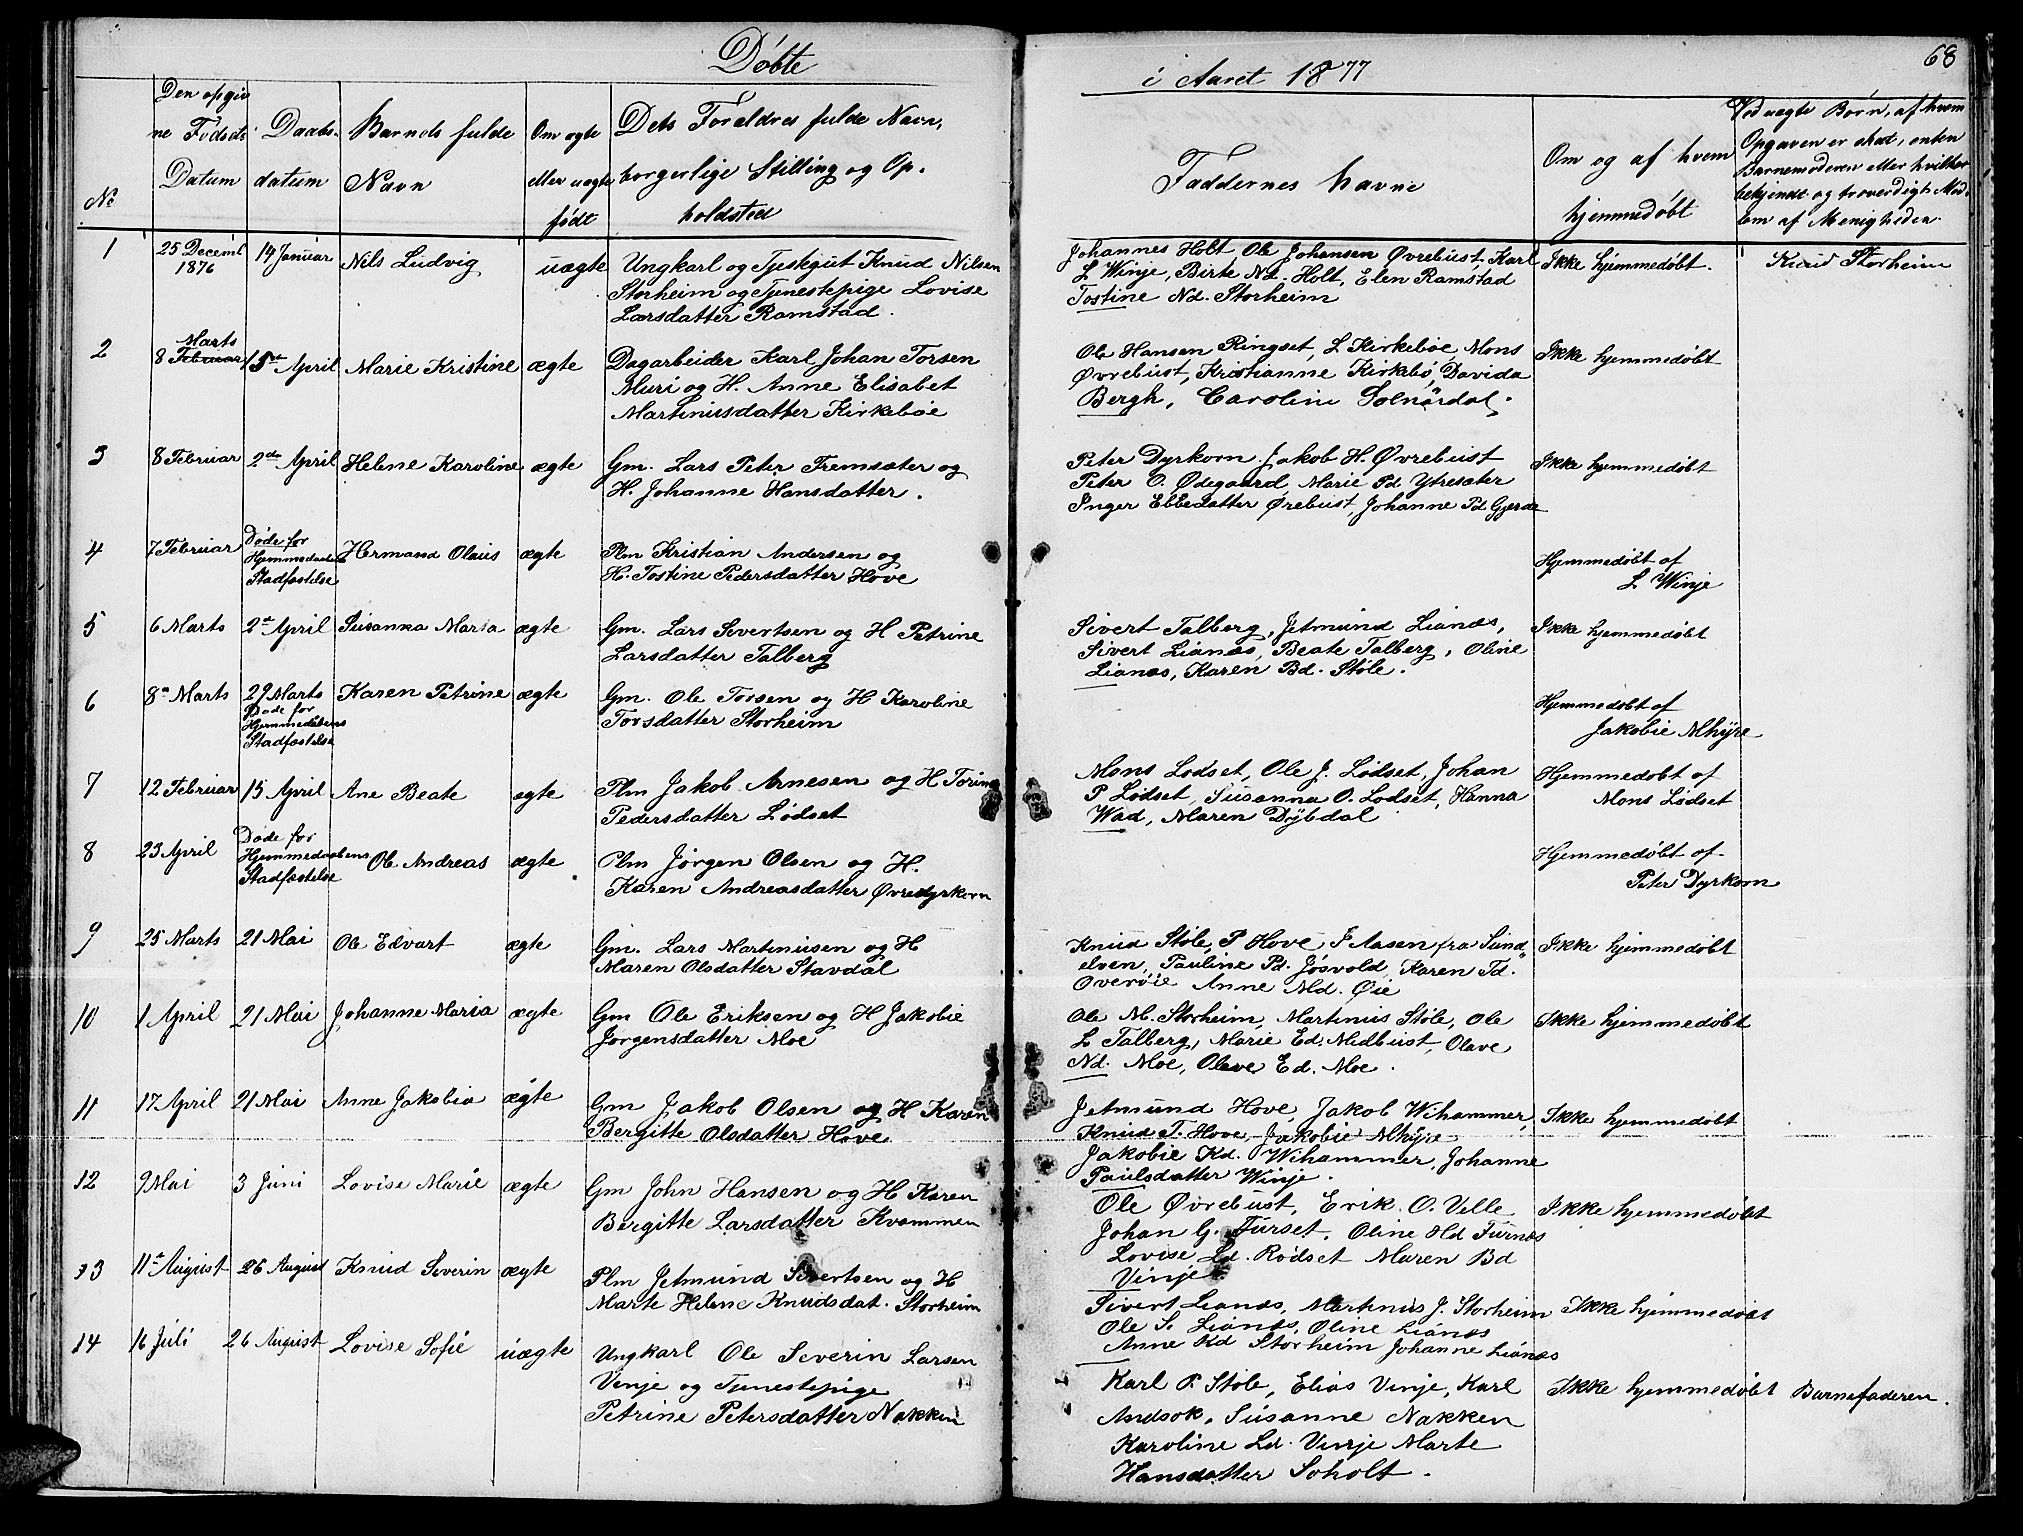 Döbte
i Aaret 1877
68
No
Den opgiv
ne Fødsels
Datum
Daabs-
datum
Barnets fulde
Navn
Om ægte
eller uægte
født
Dets Foreldres fulde Navn,
borgerlige Stilling og Op-
holdsted
Faddernes Navne
Om og af hvem
hjemmedøbt
Ved uægte Børn, af hvem
Opgaven er sked, enten
Barnemoderen eller hvilket
bekjendt og troverdigt Med-
lem af Menigheden.
1
25 Decembr
1876
14 Januar
Nils Ludvig
uægte
Ungkarl og Tjeskgut Knud Nilsen
Storheim og Tjenestepige Lovise
Larsdatter Ramstad.
Johannes Holt, Ole Johansen Øvrebust, Karl
L Winje, Birte Nd. Holt, Elen Ramstad
Tostine Nd. Storheim
Ikke hjemmedøbt.
Knud Storheim
2
Marts
8 Februar
15de April
Marie Kristine
ægte
Dagarbeider Karl Johan Torsen
Muri og H. Anne Elisabet
Martinusdatter Kirkebøe
Ole Hansen Ringset, L Kirkebøe, Mons
Øvrebust, Kristianne Kirkebø, Davida
Bergh, Caroline Solnördal.
Ikke hjemmedøbt
3
8 Februar
2de April
Helene Karoline
ægte
Gm. Lars Peter Fremsæter og
H. Johanne Hansdatter.
Peter Dyrkorn Jakob H. Øvrebust
Peter O. Ødegaard Marie Pd Ytresæter
Inger Ebbedatter Ørebust, Johanne Pd Gjerde
Ikke hjemmedøbt
4
7 Februar
Døde før
Hjemmedaabens
Stadfæstelse
Hermand Olaus
ægte
Plm Kristian Andersen og
H. Tostine Pedersdatter Hove
Hjemmedøbt af
L Winje
5
6 Marts
2de April
Susanna Maria
ægte
Gm. Lars Severtsen og H Petrine
Larsdatter Talberg
Sivert Talberg, Jetmund Lianæs,
Sivert Lianæs, Beate Talberg, Oline
Lianæs, Karen Bd. Støle.
Ikke hjemmedøbt
6
8de Marts
29 Marts
Døde før
Hjemmedåbens
Stadfæstelse
Karen Petrine
ægte
Gm. Ole Torsen og H Karoline
Torsdatter Storheim
Hjemmedøbt af
Jakobie Mhýre
7
12 Februar
15 April
Ane Beate
ægte
Plm Jakob Arnesen og H Torine
Pedersdatter Lødset
Mons Lødset, Ole J. Lødset, Johan
P Lødset, Susanna O. Lødset, Hanna
Wad, Maren Dÿbdal
Hjemmedøbt af
Mons Lødset
8
23 April
Døde før
Hjemmedaabens
Stadfæstelse
Ole Andreas
ægte
Plm Jørgen Olsen og H.
Karen Andreasdatter Øvredyrkorn
Hjemmedøbt af
Peter Dyrkorn
9
25 Marts
21 Mai
Ole Edvart
ægte
Gm. Lars Martinusen og H
Maren Olsdatter Stavdal
Knud Støle, P Hove, P Aasen fra Sund
elven, Pauline Pd. Jøsvold, Karen Td.
Overøie Anne Md. Øie
Ikke hjemmedøbt
10
1 April
21 Mai
Johanne Maria
ægte
Gm Ole Eriksen og H Jakobie
Jørgensdatter Moe
Ole M. Storheim, Martinus Støle, Ole
L Talberg, Marie Ed. Midbust, Olave
Nd. Moe, Olave Ed. Moe.
Ikke hjemmedøbt
11
17 April
21 Mai
Anne Jakobia
ægte
Gm Jakob Olsen og H Karen
Bergitte Olsdatter Hove
Jetmund Hove, Jakob Wihammer,
Knud T. Hove, Jakobie Mhÿre
Jakobie Kd. Wihammer, Johanne
Paulsdatter Winje.
Ikke hjemmedøbt
12
9 Mai
3 Juni
Lovise Marie
ægte
Gm John Hansen og H Karen
Bergitte Larsdatter Kvammen
Ole Øvrebust, Erik O. Velle
Johan G. Furset, Oline Hd Furnæs
Lovise Ld. Rødset Maren Bd
Vinje
Ikke hjemmedøbt
13
11te August
26 August
Knud Severin
ægte
Plm Jetmund Sivertsen og H
Marte Helene Knudsdat. Storheim
Sivert Lianæs, Martinus J. Storheim
Ole S. Lianæs, Oline Lianæs
Anne Kd Storheim Johanne Lianæs
Ikke hjemmedøbt
14
16 Juli
26 August
Lovise Sofie
uægte
Ungkarl Ole Severin Larsen
Vinje og Tjenestepige
Petrine Petersdatter Nakken
Karl P. Støle, Elias Vinje, Karl
Andsok, Susanne Nakken
Karoline Ld. Vinje Marte
Hansdatter Soholt.
Ikke hjemmedøbt
Barnefaderen.